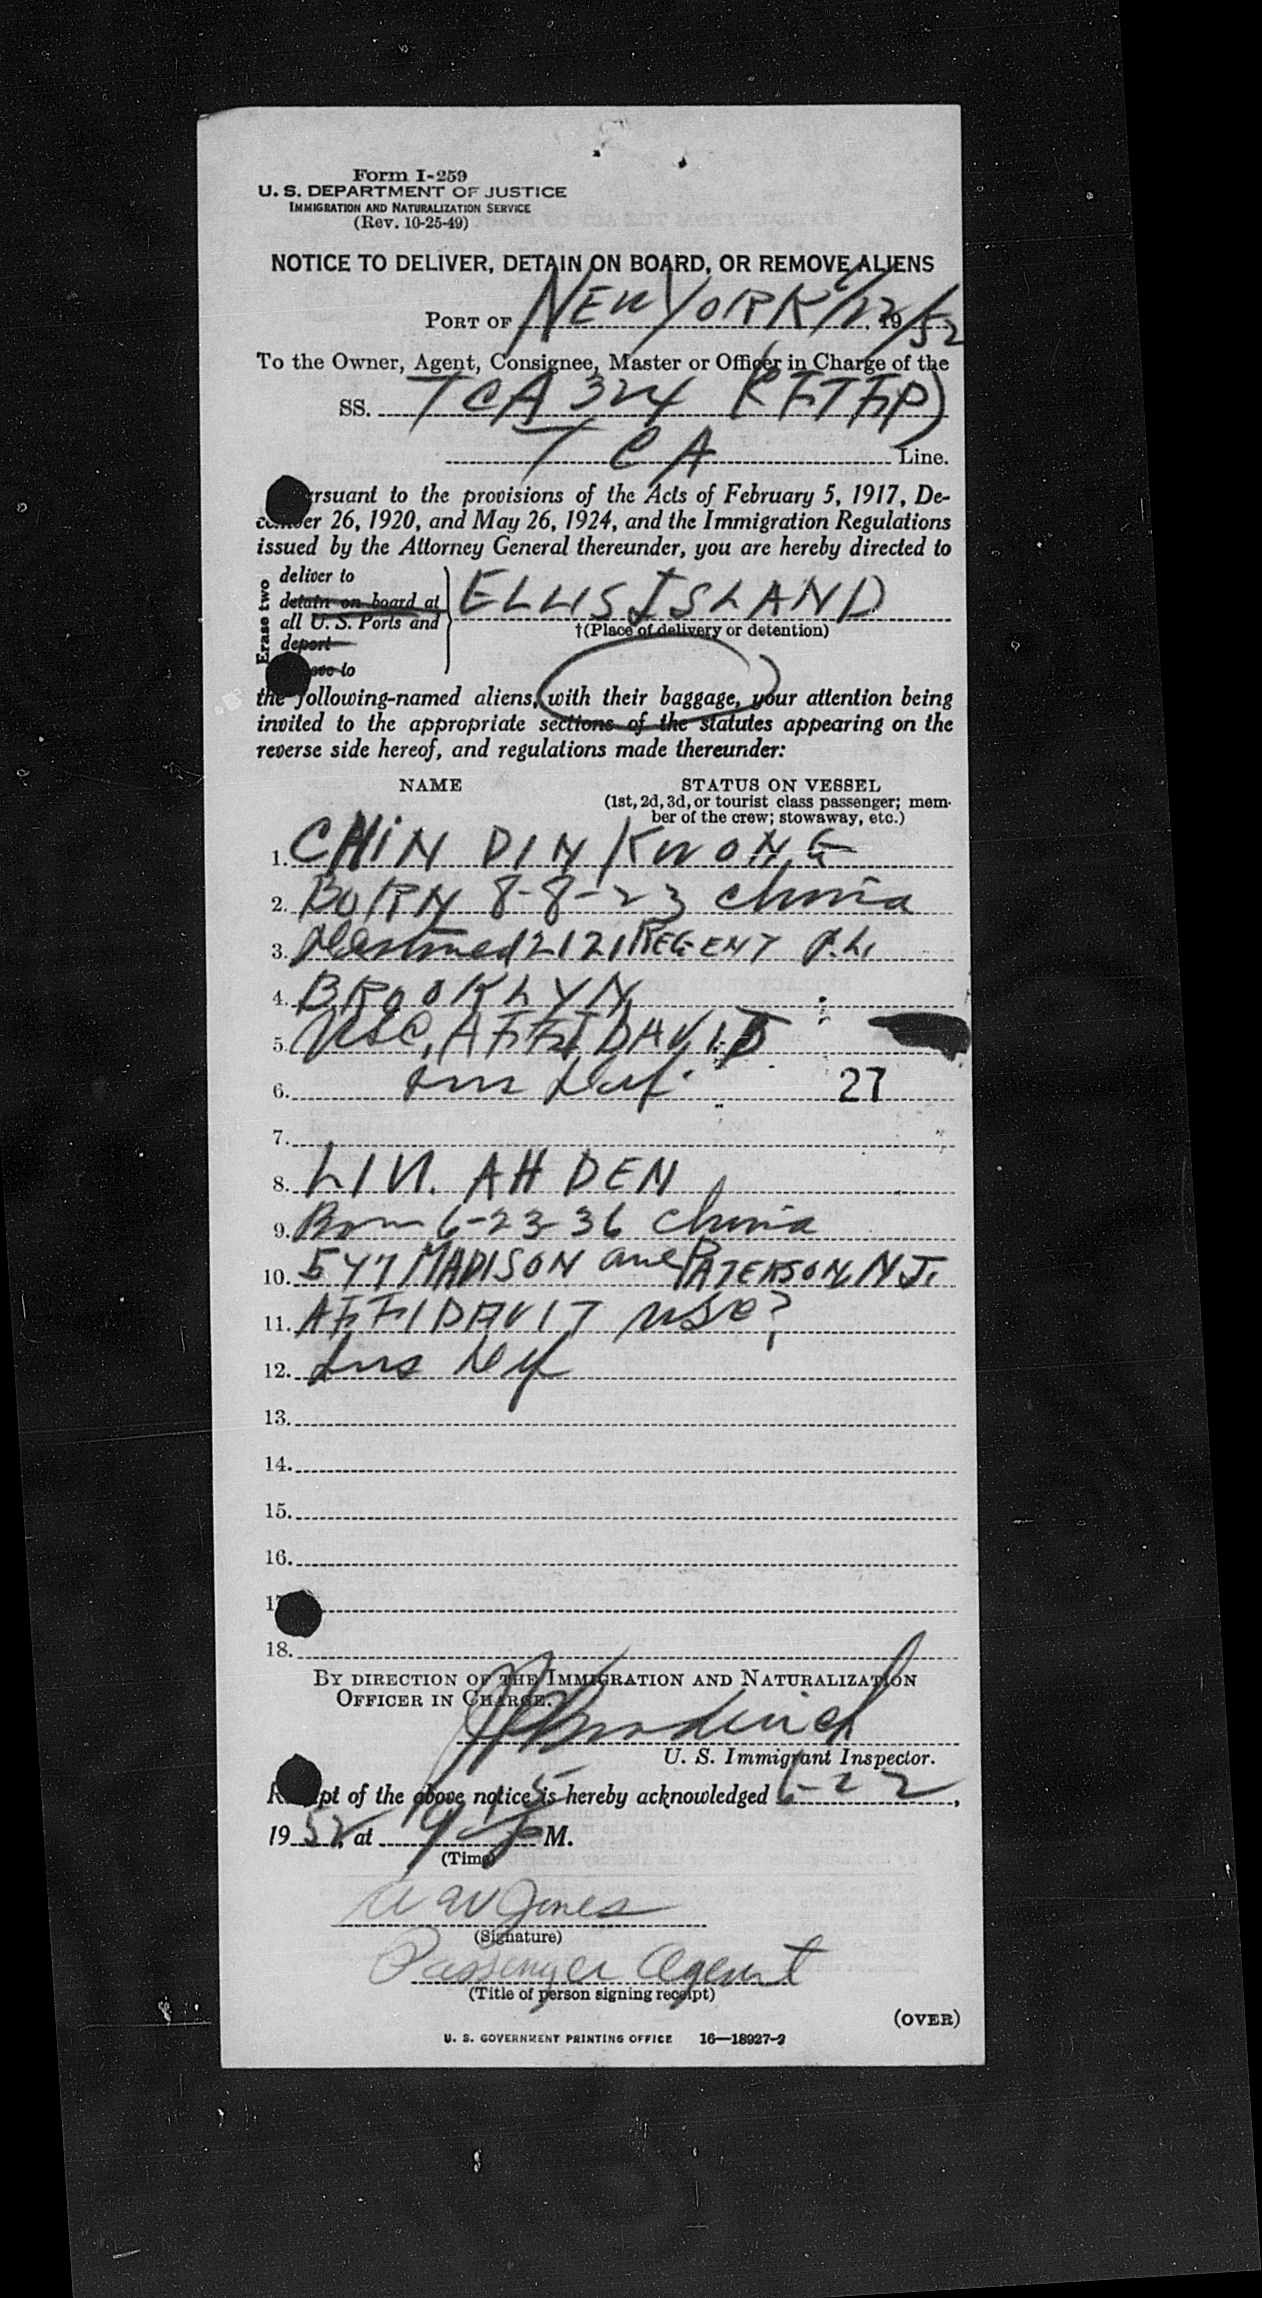 Form I-259
U. S. DEPARTMENT OF JUSTICE
IMMIGRATION AND NATURALIZATION SERVICE
(Rev. 10-25-49)
NOTICE TO DELIVER, DETAIN ON BOARD, OR REMOVE ALIENS
PORT OF NEW YORK 6/22, 19/52
To the Owner, Agent, Consignee, Master or Officer in Charge of the
SS. TCA 324
TCA Line.
rsuant to the provisions of the Acts of February 5, 1917, De-
cember 26, 1920, and May 26, 1924, and the Immigration Regulations
issued by the Attorney General thereunder, you are hereby directed to
Erase two
deliver to
detain on board at
all U. S. Ports and
deport
ove to
ELLIS ISLAND
†(Place of delivery or detention)
the following-named aliens, with their baggage, your attention being
invited to the appropriate sections of the statutes appearing on the
reverse side hereof, and regulations made thereunder:
NAME
STATUS ON VESSEL
(1st, 2d, 3d, or tourist class passenger; mem-
ber of the crew; stowaway, etc.)
1. CHIN DIN KWONG
2. BORN 8-8-23 China
3. Destined 2121 REGENT Pl.
4. BROOKLYN
5. USC, AFFIDAVID
6. 27
7.
8. LIN. AH DEN
9. Born 6-23-36 China
10. 547 MADISON ave PATERSON, N J.
11. AFFIDAVIT USC?
12.
13.
14.
15.
16.
17
18.
BY DIRECTION OF THE IMMIGRATION AND NATURALIZATION
OFFICER IN CHARGE.
U. S. Immigrant Inspector.
R pt of the above notice is hereby acknowledged 6-22,
1952, at 9 45 P M.
(Time)
Jones
(Signature)
Passenger Agent
(Title of person signing receipt)
(OVER)
U. S. GOVERNMENT PRINTING OFFICE 16—18927-2